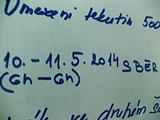 Omezení tekutin 500
10. - 11. 5. 2014 SBĚR
(6h - 6h)
druhém